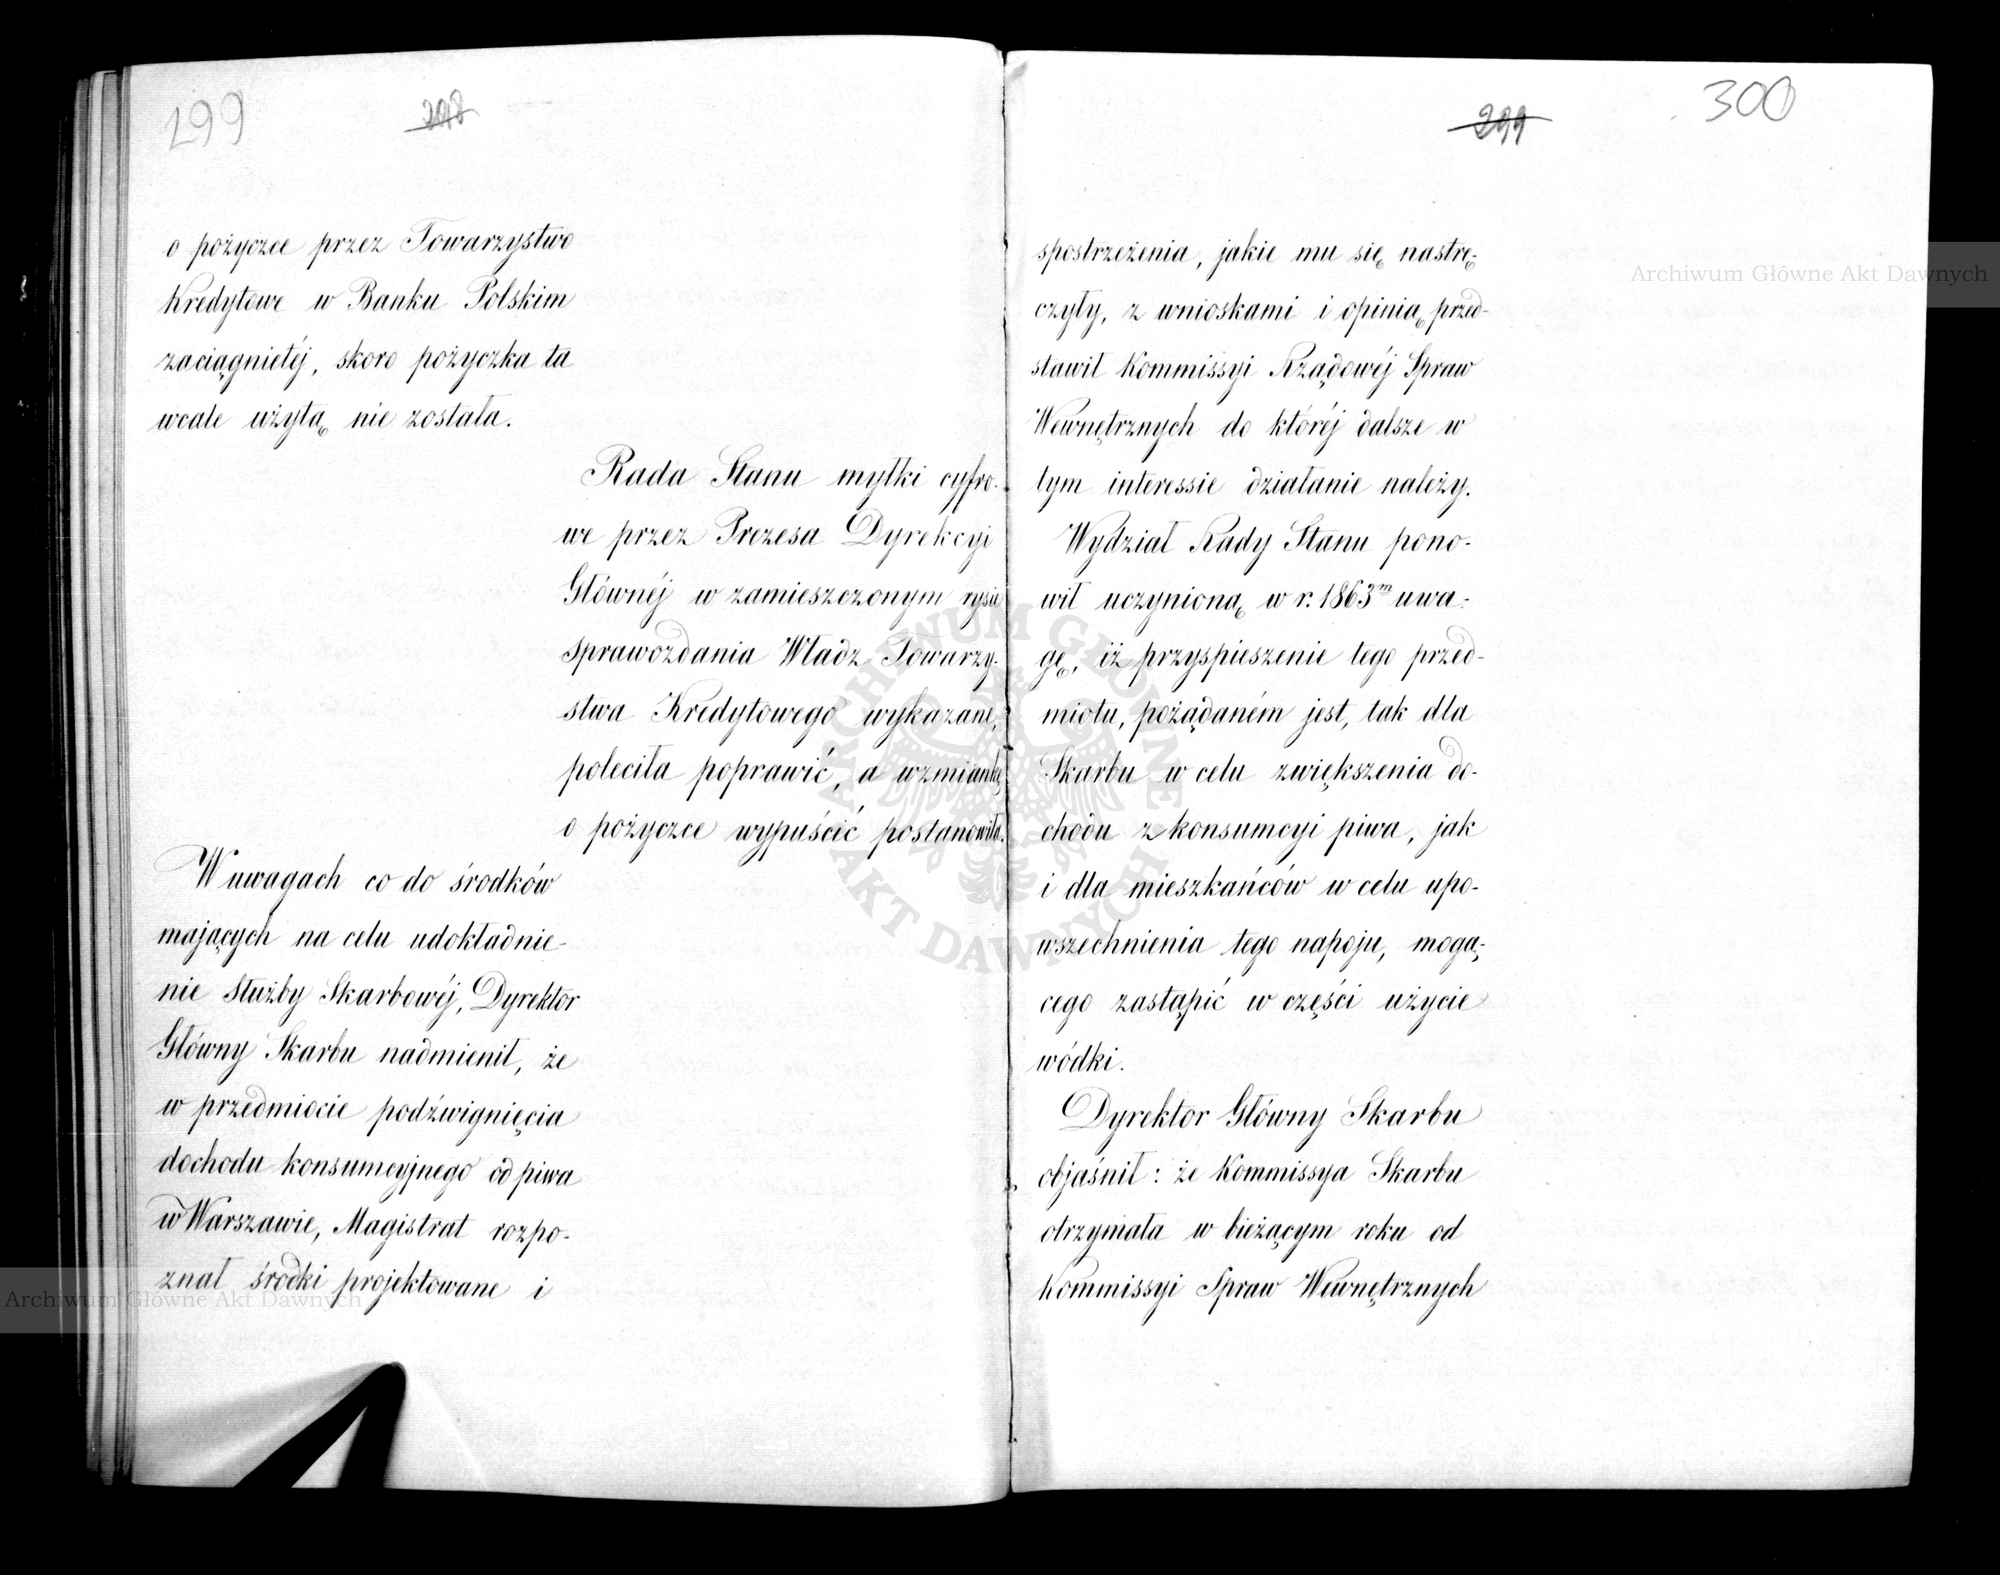 299
298
o pożyczce przez Towarzystwo
Kredytowe w Banku Polskim
zaciągnietéj, skoro pożyczka ta
wcale użytą nie została.
Rada Stanu myłki cyfro-
we przez Prezesa Dyrekcyi
Głównéj w zamieszczonym rysie
sprawozdania Władz Towarzy-
stwa Kredytowego wykazane,
poleciła poprawić, a wzmiankę
o pożyczce wypuścić postanowiła.
W uwagach co do środków
mających na celu udokładnie-
nie służby Skarbowéj, Dyrektor
Główny Skarbu nadmienił, że
w przedmiocie podźwignięcia
dochodu konsumcyjnego od piwa
w Warszawie, Magistrat rozpo-
znał środki projektowane i
299
300
spostrzeżenia, jakie mu się nastrę-
czyły, z wnioskami i opinią przed-
stawił Kommissyi Rządowéj Spraw
Wewnętrznych do któréj dalsze w
tym interessie działanie należy.
Wydział Rady Stanu pono-
wił uczynioną w r. 1863m uwa-
gę, iż przyspieszenie tego przed-
miotu, pożądaném jest, tak dla
Skarbu w celu zwiększenia do-
chodu z konsumcyi piwa, jak
i dla mieszkańców w celu upo-
wszechnienia tego napoju, mogą-
cego zastąpić w części użycie
wódki.
Dyrektor Główny Skarbu
objaśnił: że Kommissya Skarbu
otrzymała w bieżącym roku od
Kommissyi Spraw Wewnętrznych
Archiwum Główne Akt Dawnych
Archiwum Główne Akt Dawnych
ARCHIWUM GŁÓWNE AKT DAWNYCH